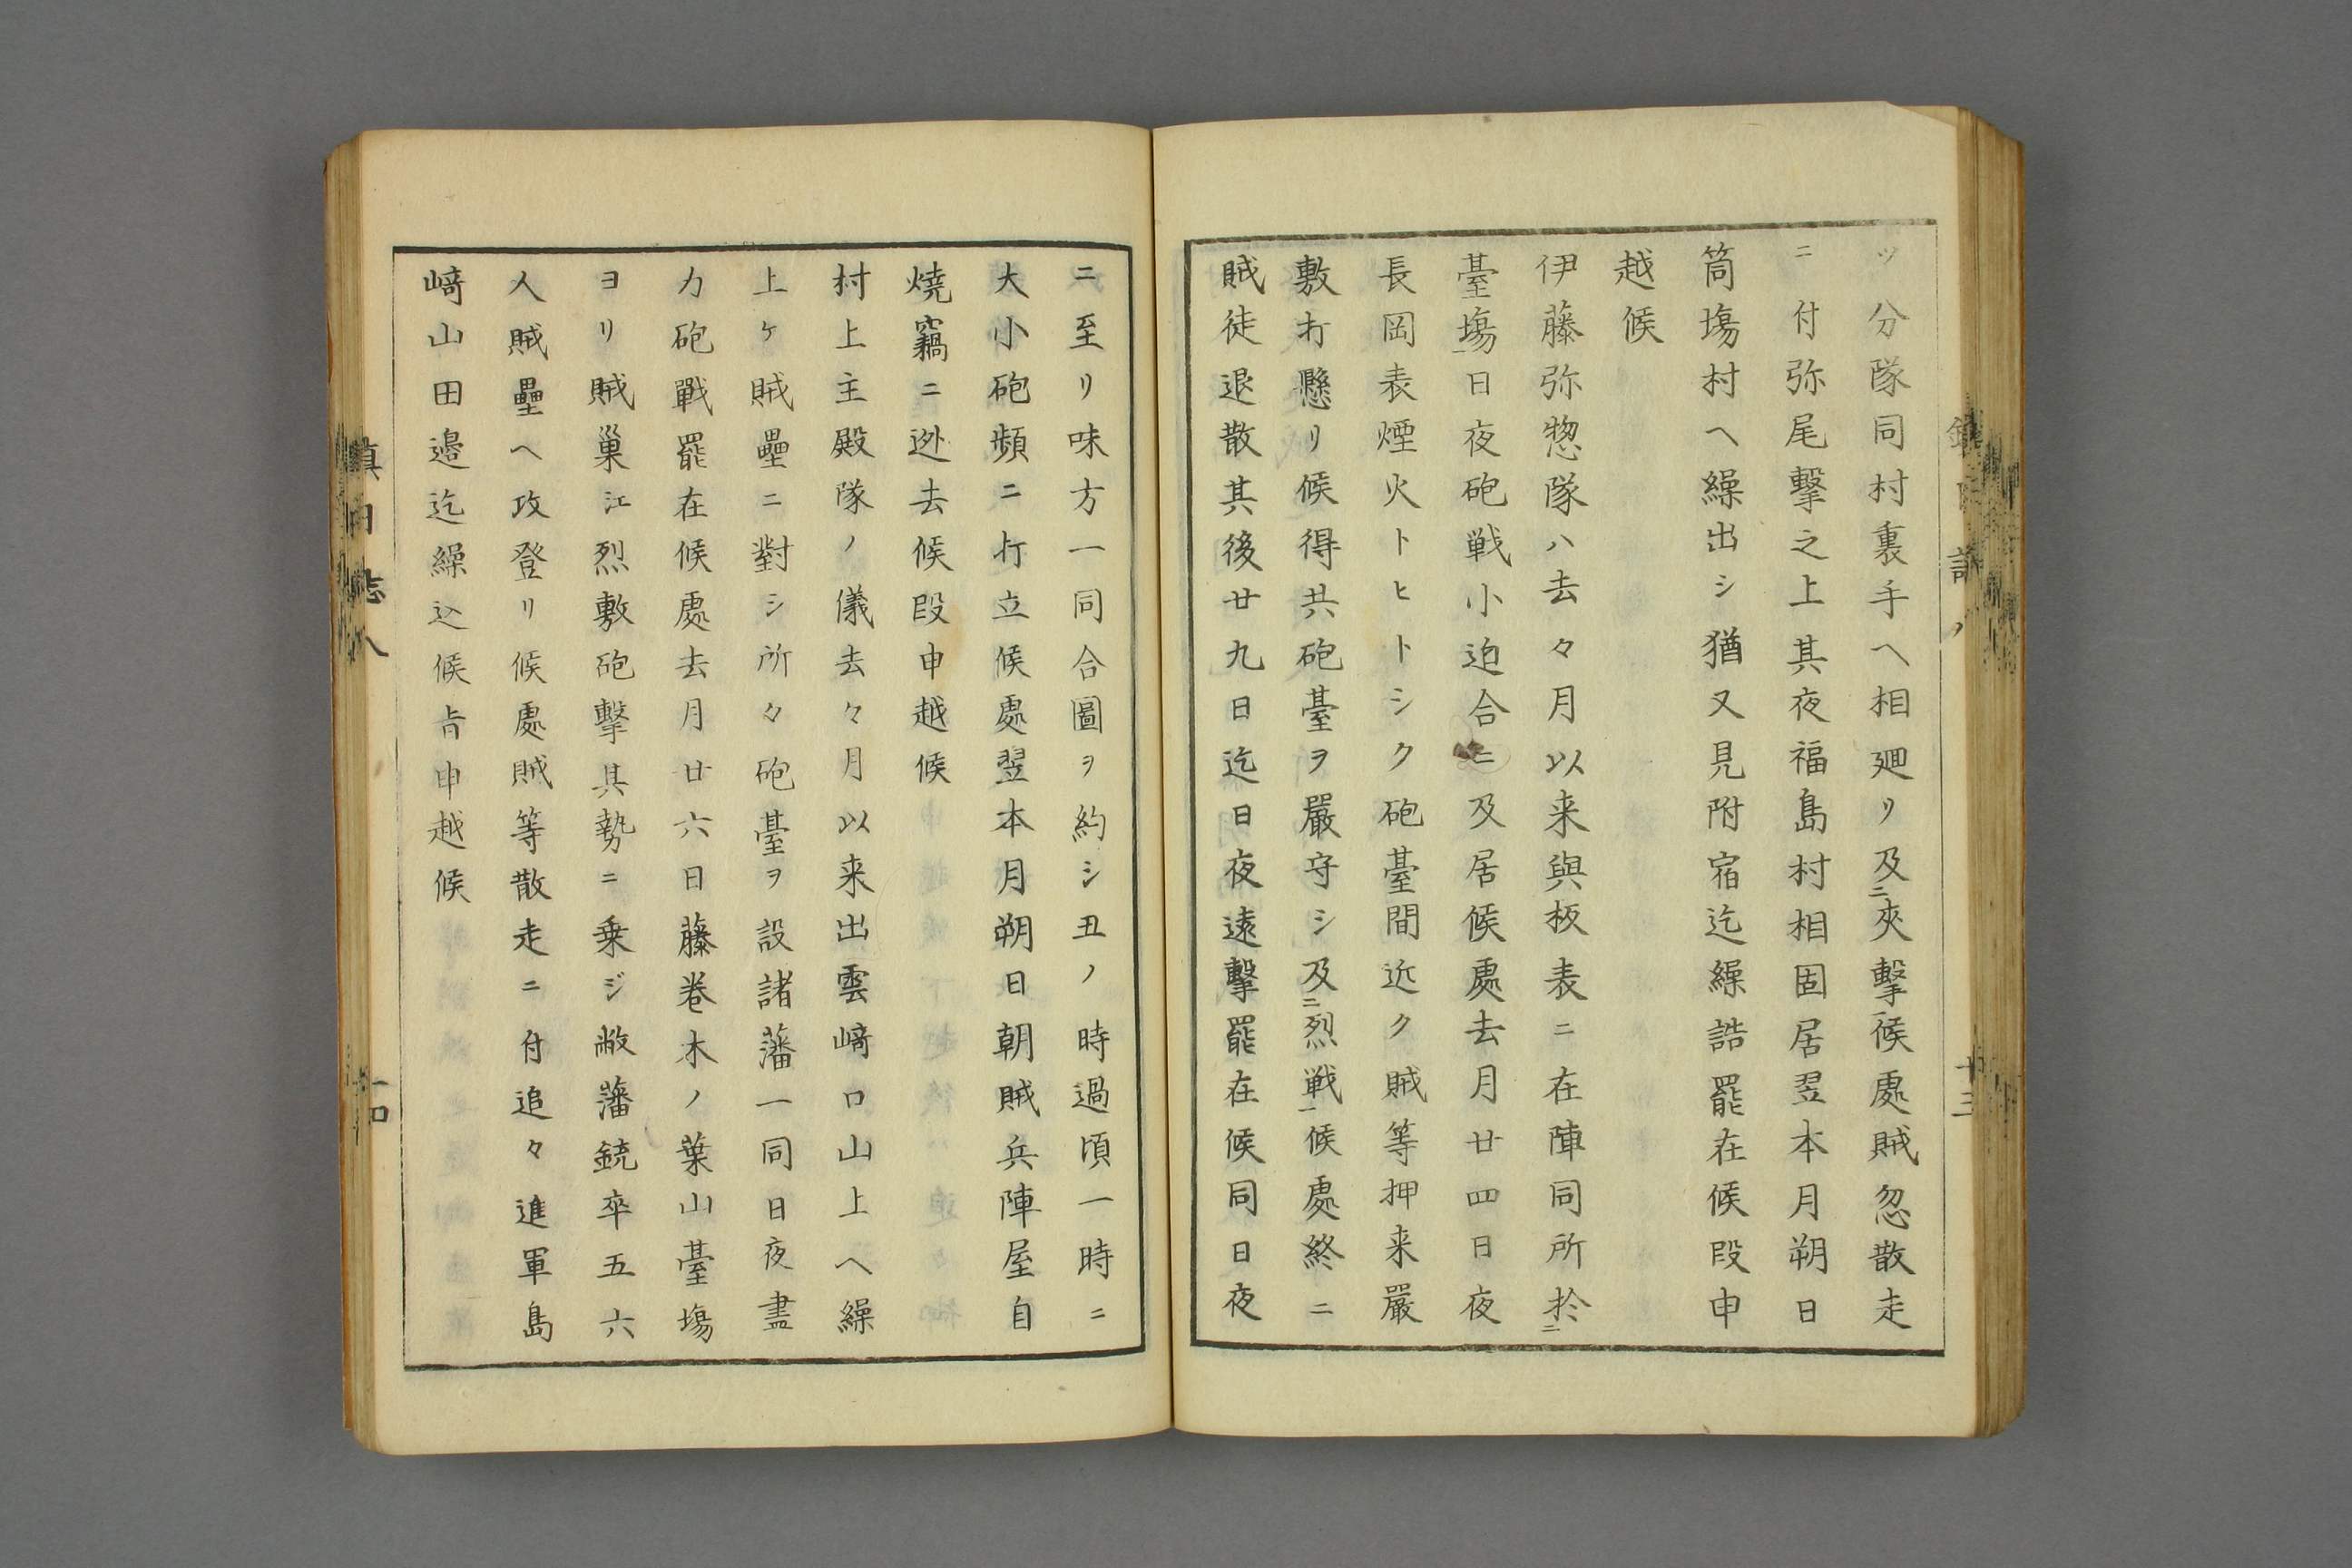 ツ分隊同村裏手ヘ相廻リ及ニ夾擊一候處賊忽散走
ニ付弥尾擊之上其夜福島村相固居翌本月朔日
筒塲村ヘ繰出シ猶又見附宿迄繰誥罷在候段申
越候
伊藤弥惣隊ハ去々月以来與板表ニ在陣同所於ニ
臺塲一日夜砲戦小迫合ニ及居候處去月廿四日夜
長岡表煙火トヒトシク砲臺間近ク賊等押来嚴
敷打懸リ候得共砲臺ヲ嚴守シ及ニ烈戦一候處終ニ
賊徒退散其後廿九日迄日夜遠擊罷在候同日夜
ニ至リ味方一同合圖ヲ約シ丑ノ時過頃一時ニ
大小砲頻ニ打立候處翌本月朔日朝賊兵陣屋自
燒竊ニ迯去候段申越候
村上主殿隊ノ儀去々月以来出雲﨑口山上ヘ繰
上ケ賊壘ニ對シ所々砲臺ヲ設諸藩一同日夜盡
力砲戰罷在候處去月廿六日藤卷木ノ葉山臺塲
ヨリ賊巢江烈敷砲擊其勢ニ乗ジ敝藩銃卒五六
人賊壘ヘ攻登リ候處賊等散走ニ付追々進軍島
﨑山田邉迄繰込候㫖申越候